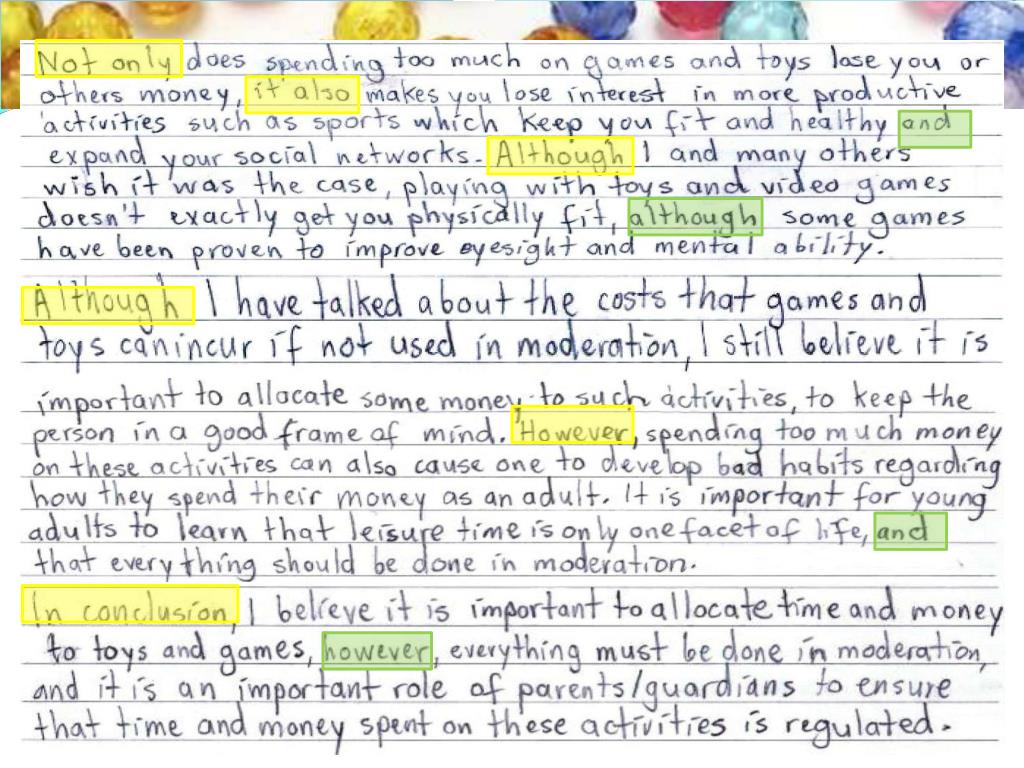 Not only does spending too much on games and toys lose you or
others money, it also makes you lose interest in more productive
activities such as sports which keep you fit and healthy and
expand your social networks. Although I and many others
wish it was the case, playing with toys and video games
doesn't exactly get you physically fit, although some games
have been proven to improve eyesight and mental ability.
Although I have talked about the costs that games and
toys can incur if not used in moderation, I still believe it is
important to allocate some money to such activities, to keep the
person in a good frame of mind. However, spending too much money
on these activities can also cause one to develop bad habits regarding
how they spend their money as an adult. It is important for young
adults to learn that leisure time is only one facet of life, and
that everything should be done in moderation.
In conclusion, I believe it is important to allocate time and money
to toys and games, however, everything must be done in moderation,
and it is an important role of parents/guardians to ensure
that time and money spent on these activities is regulated.